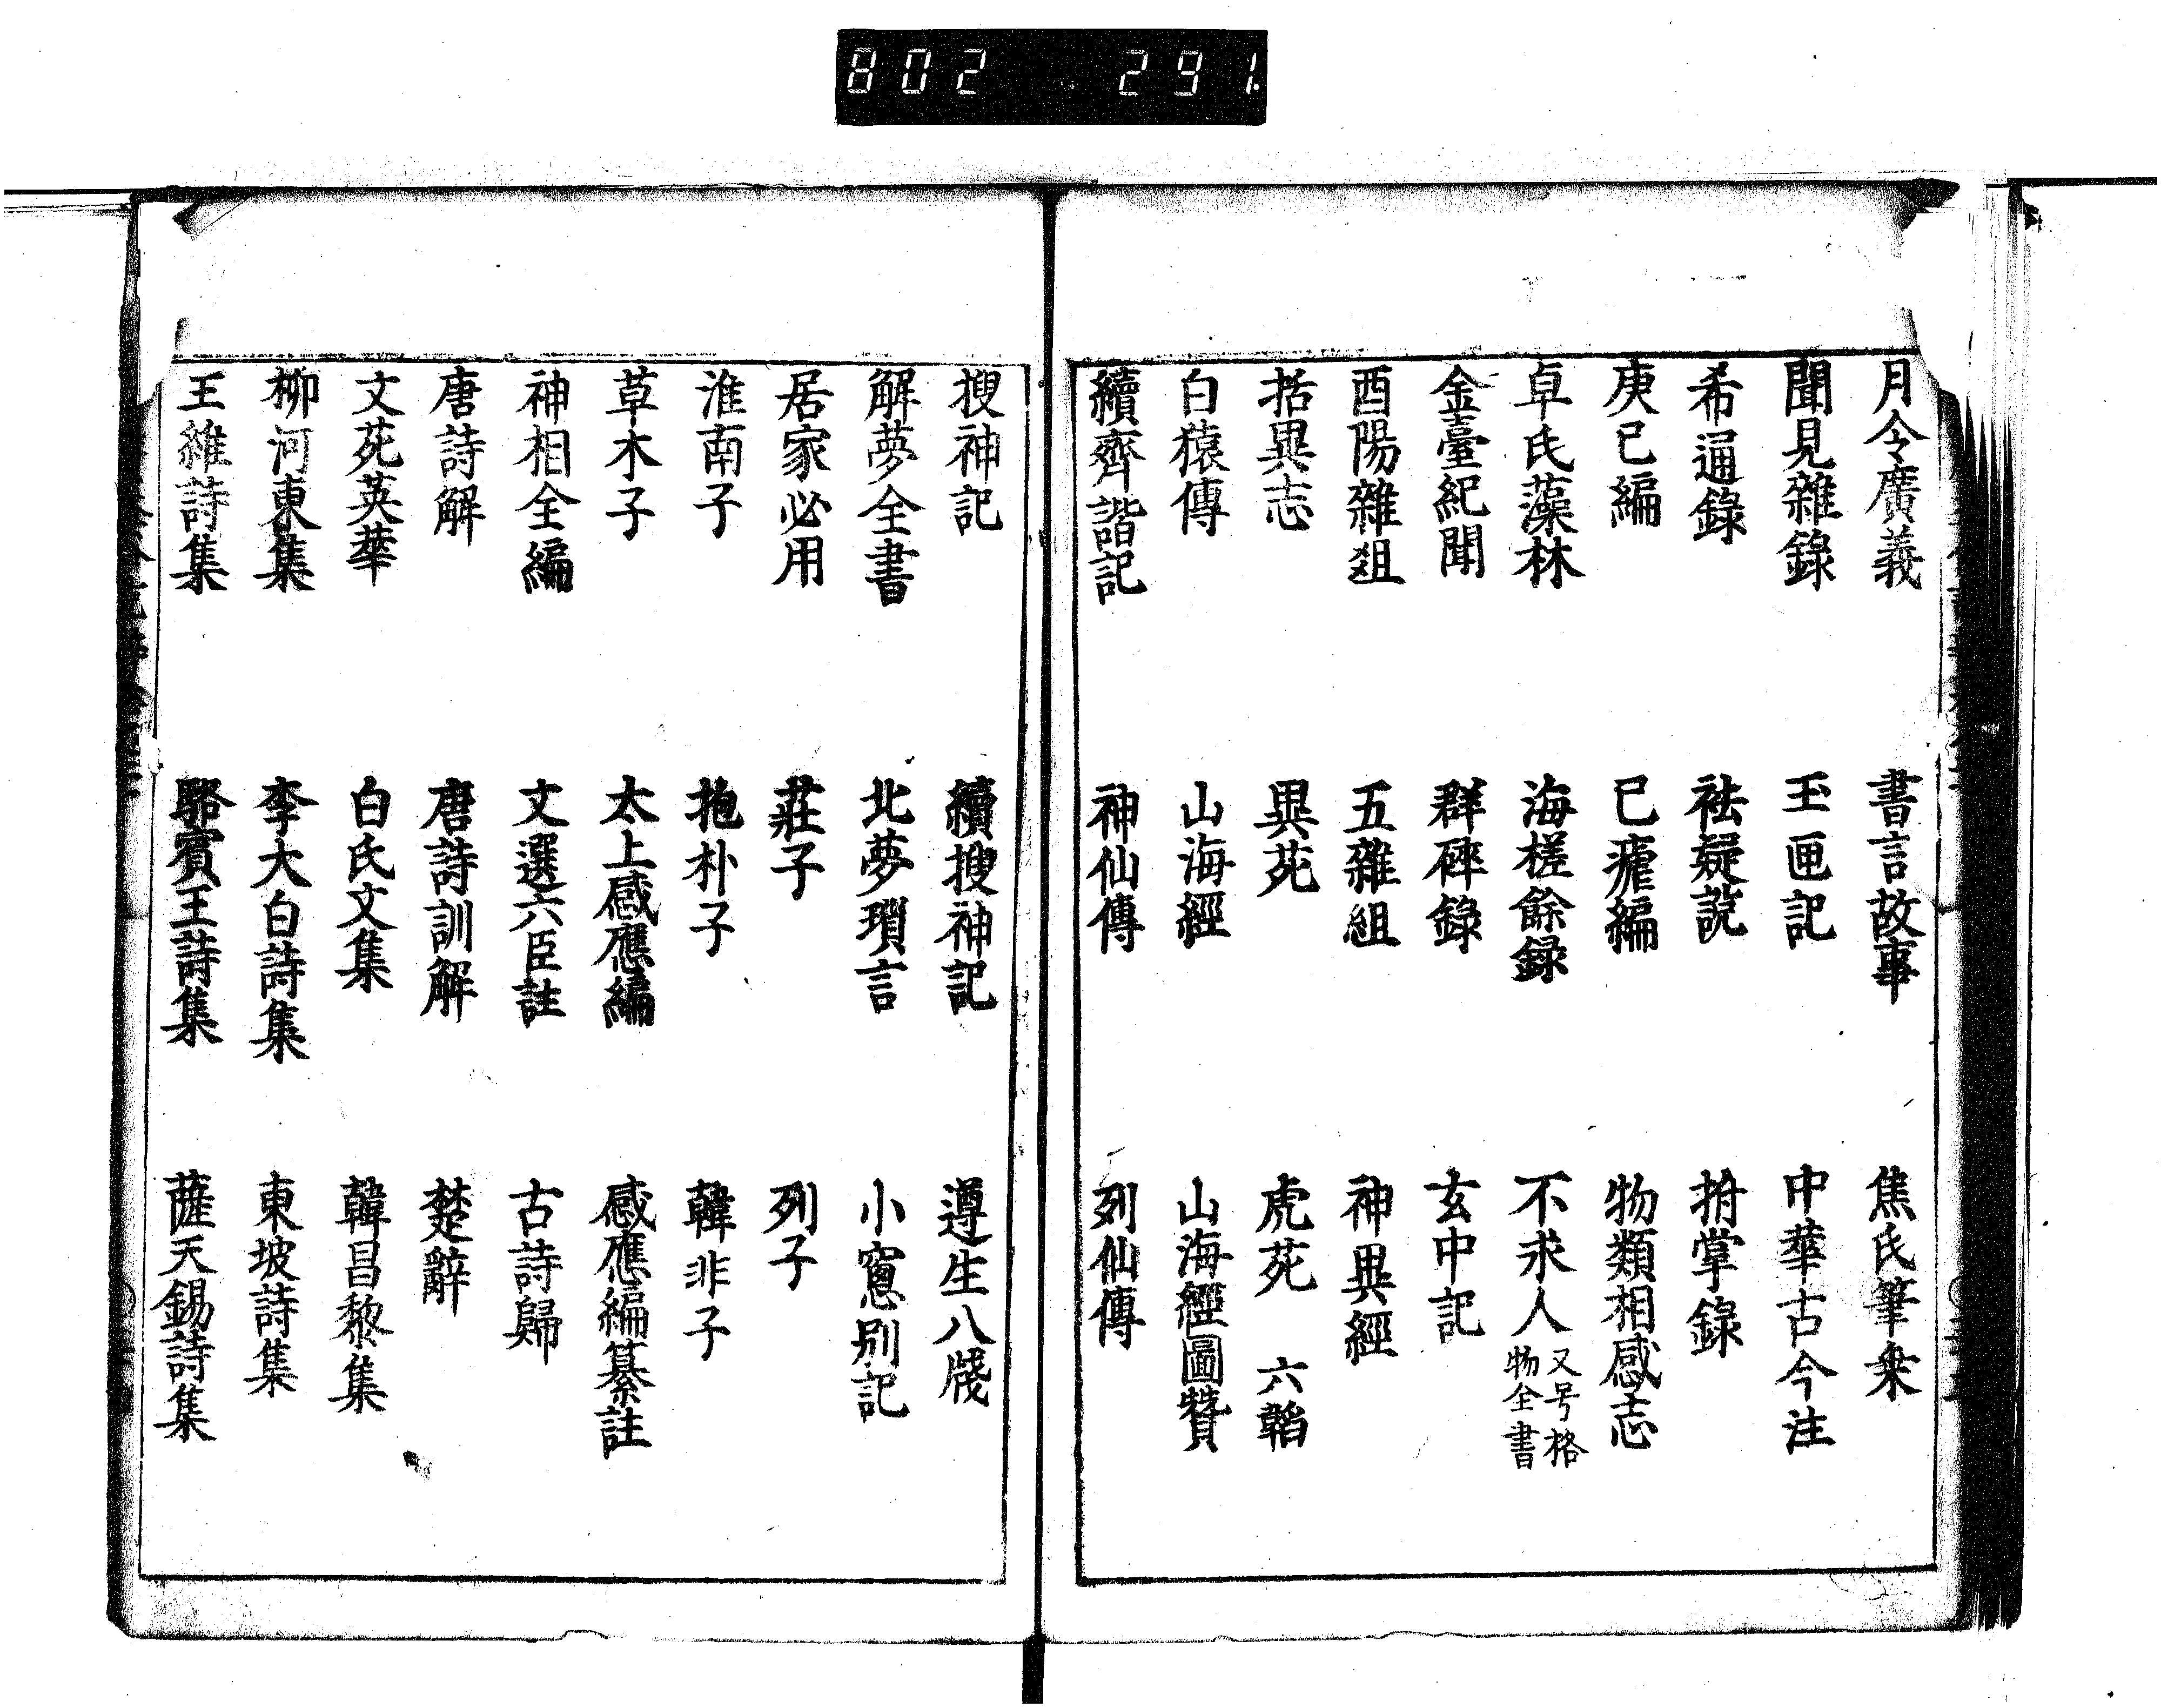 802 291
月令廣義 書言故事 焦氏筆乗
聞見雜錄 玉匣記 中華古今注
希通錄 祛疑説 拊掌錄
庚已編 已瘧編 物類相感志
卓氏藻林 海槎餘録 不求人 又号格物全書
金臺紀聞 群碎錄 玄中記
酉陽雜俎 五雜組 神異經
括異志 異苑 虎苑 六韜
白猿傳 山海經 山海經圖贊
續齊諧記 神仙傳 列仙傳
搜神記 續搜神記 遵生八牋
解夢全書 北夢瑣言 小窻别記
居家必用 莊子 列子
淮南子 抱朴子 韓非子
草木子 太上感應編 感應編纂註
神相全編 文選六臣註 古詩歸
唐詩解 唐詩訓解 楚辭
文苑英華 白氏文集 韓昌黎集
柳河東集 李大白詩集 東坡詩集
王維詩集 駱賓王詩集 薩天錫詩集